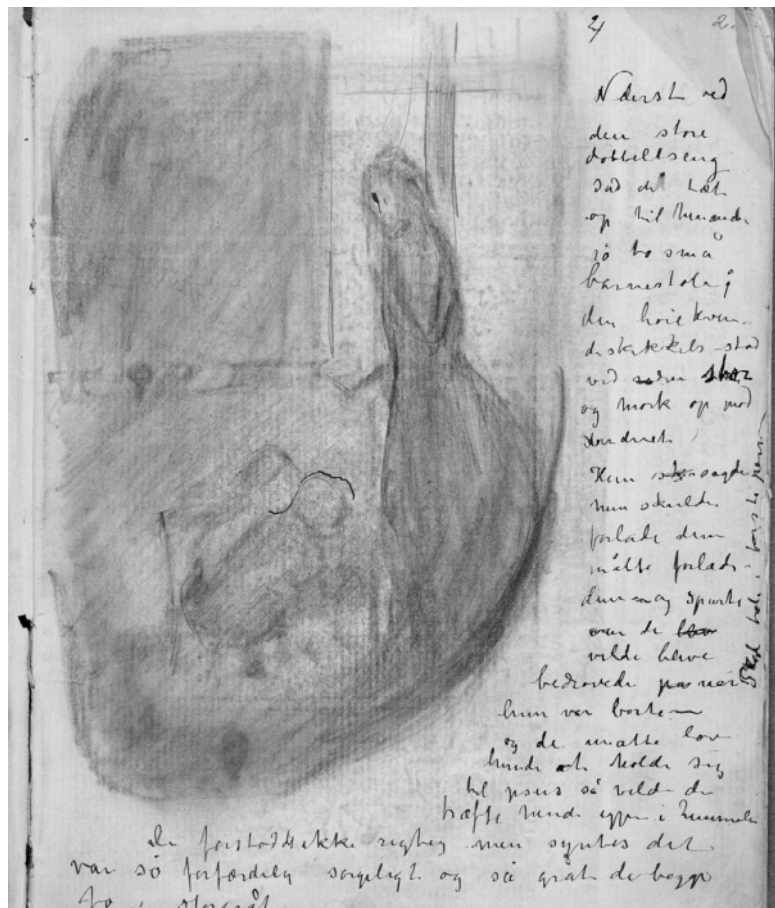 2.
Nederst ved
den store
dobbeltseng
sad det tæt
op til hinande
på to små
barnestole
den høie kvin-
deskikkels stod
ved siden stor
og mørk op mod
vinduet
Hun sagde
hun skulde
forlade dem
måtte forlade
dem og spurte
om de
vilde blive
bedrøvede når
hun var borte
og de måtte love
hende at holde sig
til Jesus så vilde de
træffe hende igjen i himmelen
De forstod ikke rigtig men syntes det
var så forfærdelig sørgeligt og så gråt de begge
to i storgråt